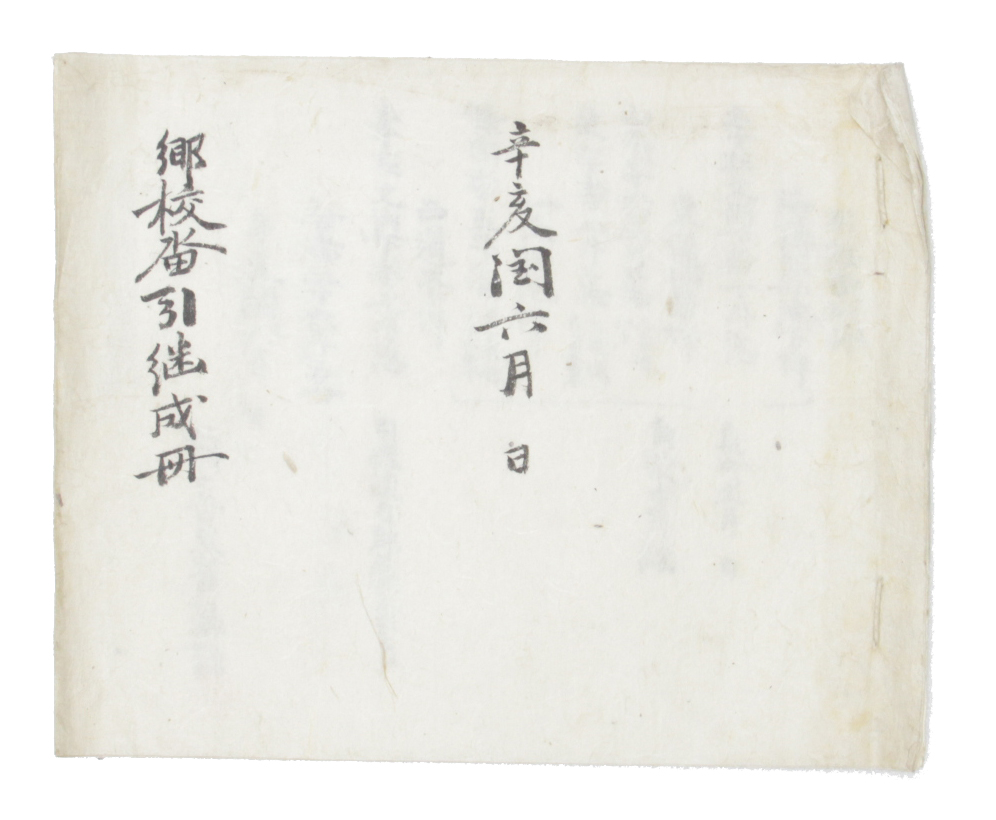 辛亥閏六月 日
鄕校畓引継成冊